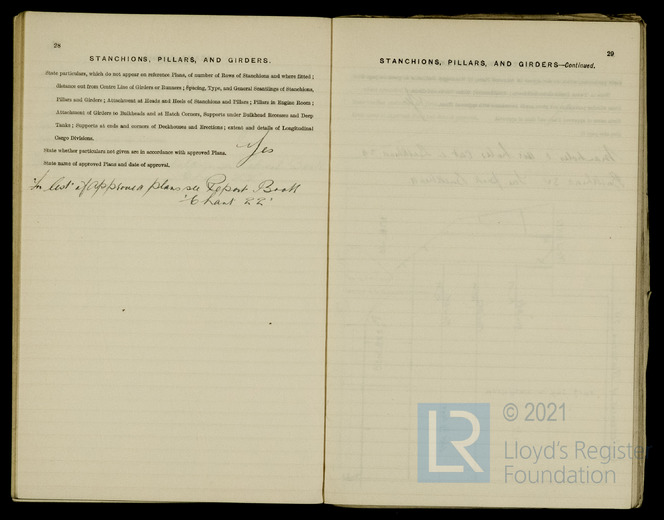 28
STANCHIONS, PILLARS, AND GIRDERS.
State particulars, which do not appear on reference Plans, of number of Rows of Stanchions and where fitted;
distance out from Centre Line of Girders or Runners; Spacing, Type, and General Scantlings of Stanchions,
Pillars and Girders; Attachment at Heads and Heels of Stanchions and Pillars; Pillars in Engine Room;
Attachment of Girders to Bulkheads and at Hatch Corners, Supports under Bulkhead Recesses and Deep
Tanks; Supports at ends and corners of Deckhouses and Erections; extent and details of Longitudinal
Cargo Divisions.
State whether particulars not given are in accordance with approved Plans. Yes
State name of approved Plans and date of approval.
For list of approved plans see Report Book
29
STANCHIONS, PILLARS, AND GIRDERS—Continued.
LR
© 2021
Lloyd's Register
Foundation